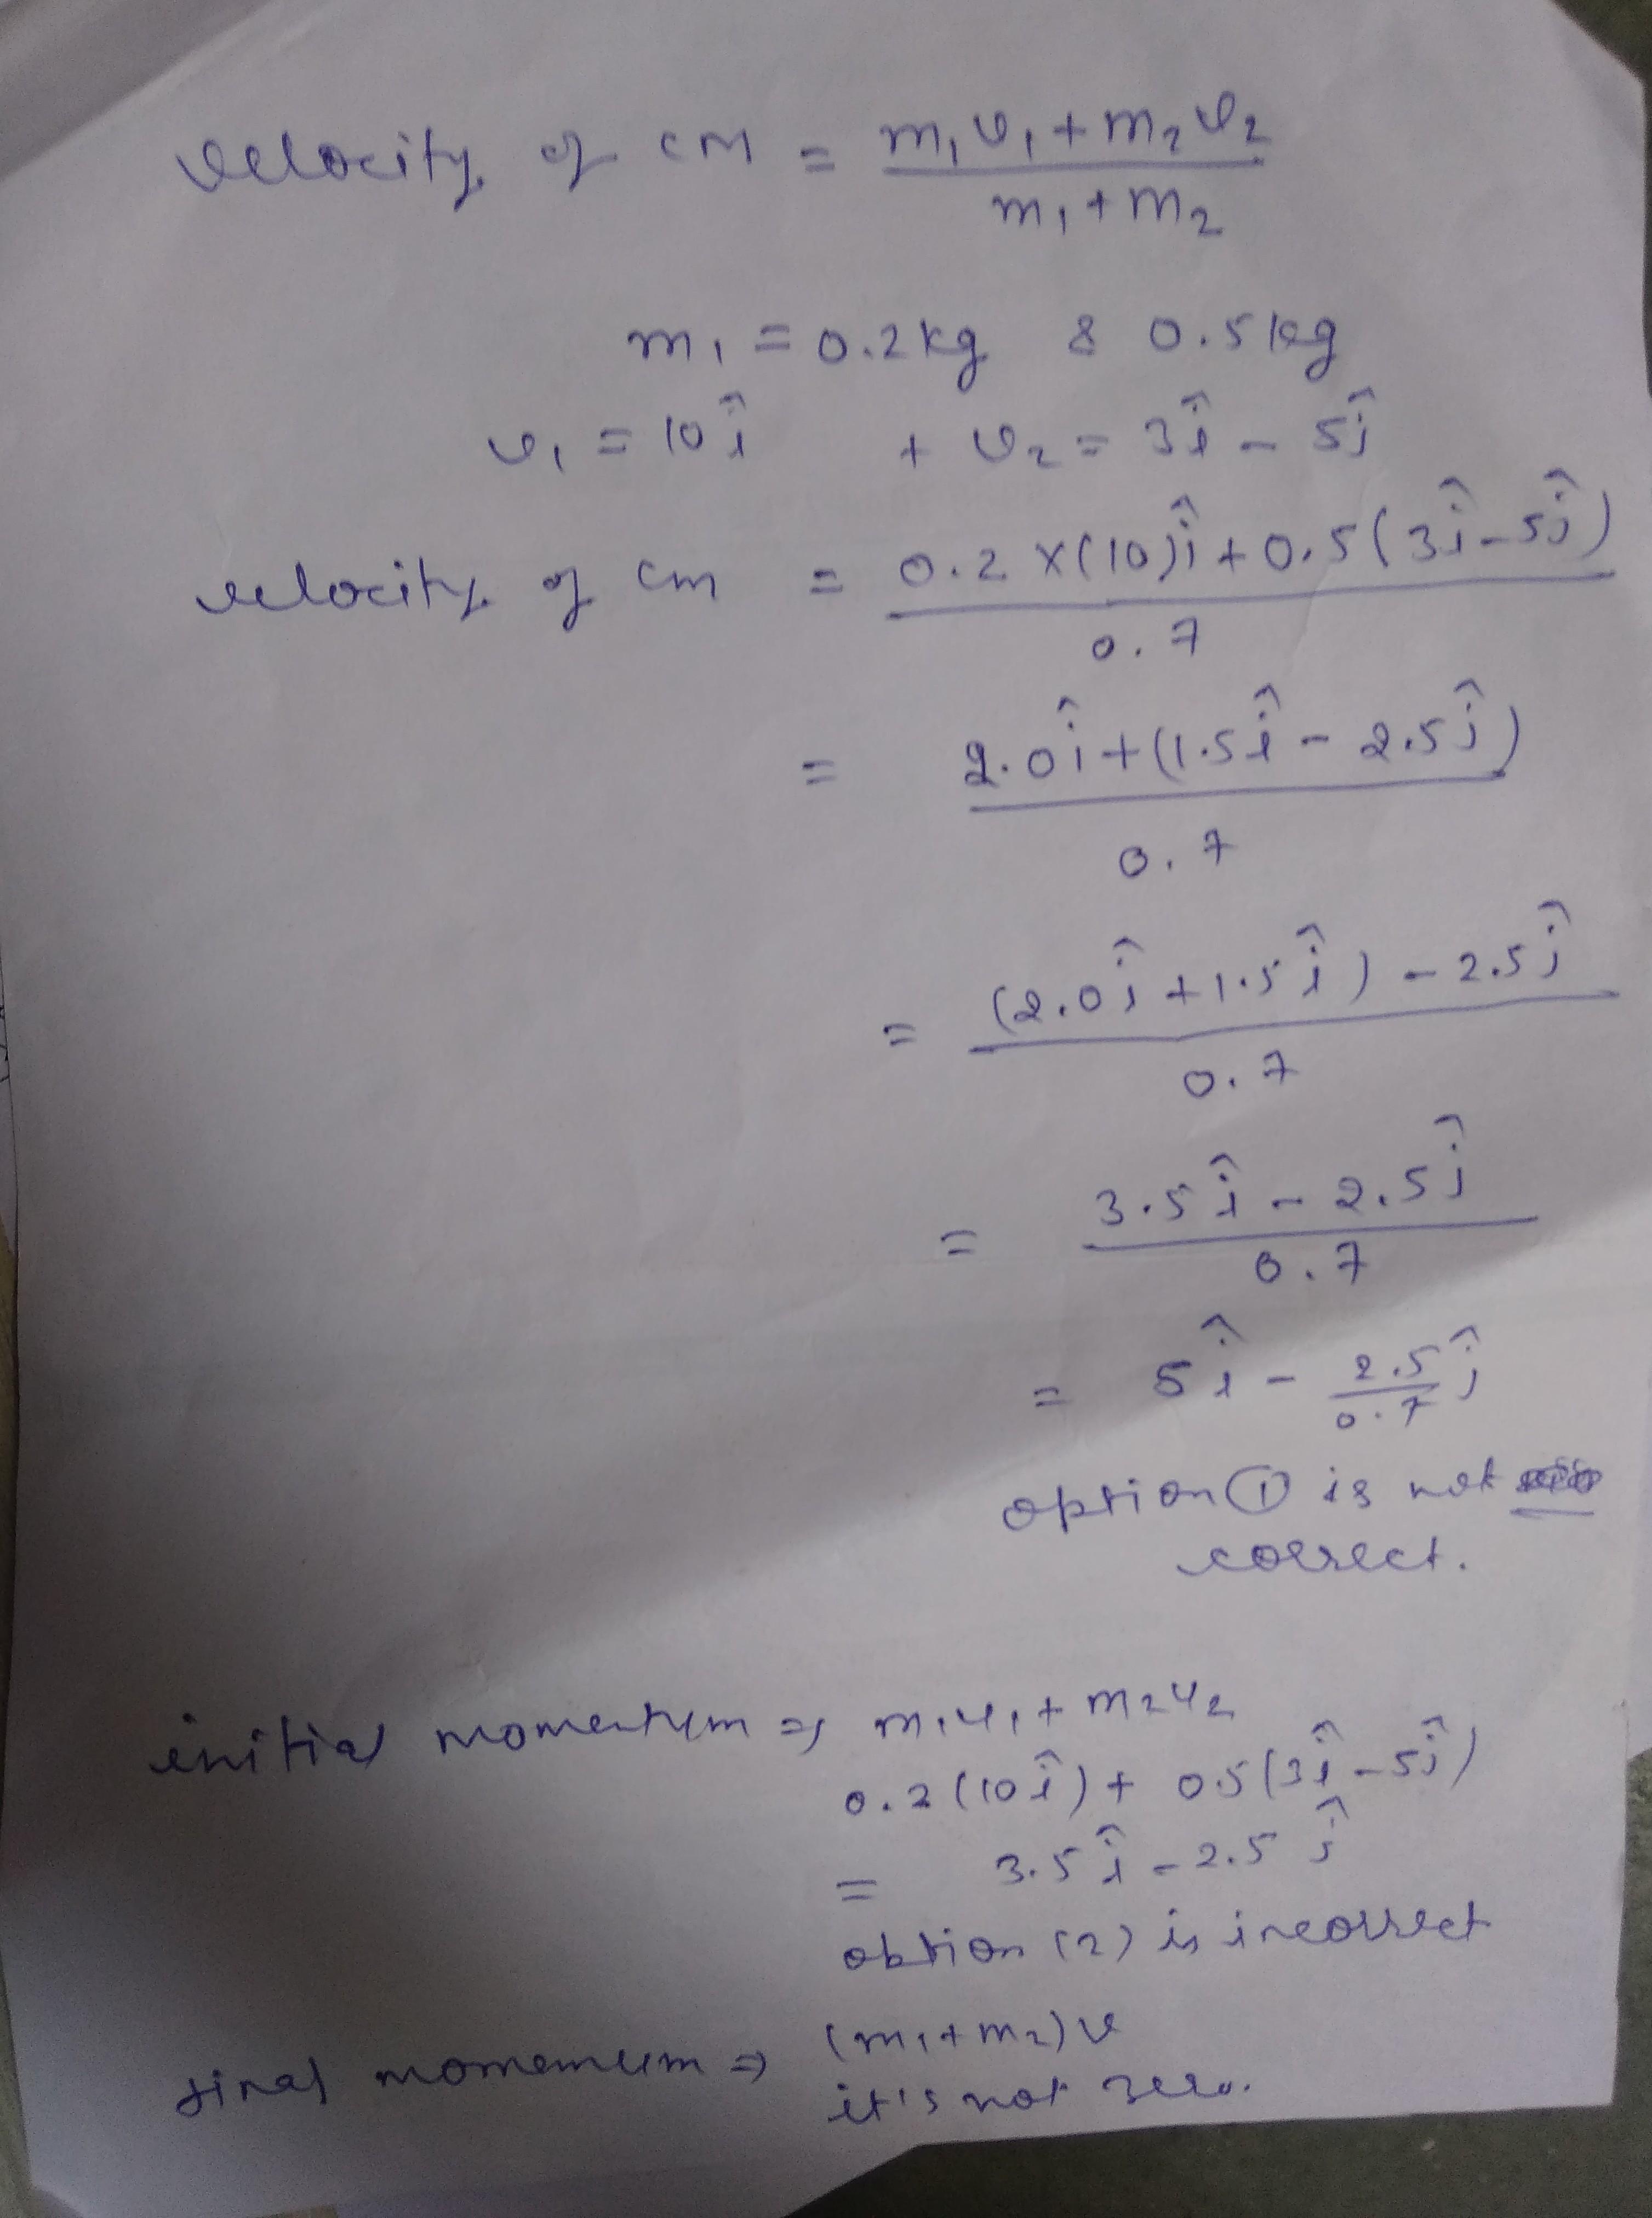 velocity of cm = m₁v₁ + m₂v₂
m₁ + m₂
m₁ = 0.2kg & 0.5kg
v₁ = 10î + v₂ = 3î - 5ĵ
velocity of cm = 0.2 x(10)î + 0.5(3î - 5ĵ)
0.7
= 2.0î + (1.5î - 2.5ĵ)
0.7
= (2.0î + 1.5î) - 2.5ĵ
0.7
= 3.5î - 2.5ĵ
0.7
= 5î - 2.5/0.7 ĵ
option ① is not
correct.
initial momentum ⇒ m₁u₁ + m₂u₂
0.2(10î) + 0.5(3î - 5ĵ)
= 3.5î - 2.5ĵ
obtion (2) is incorrect
final momemum ⇒ (m₁+m₂)v
it's not zero.